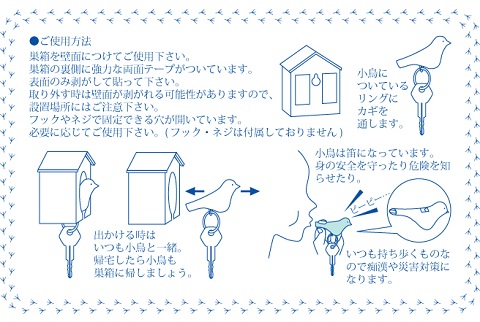 ●ご使用方法
巣箱を壁面につけてご使用下さい。
巣箱の裏側に強力な両面テープがついています。
表面のみ剥がして貼って下さい。
取り外す時は壁面が剥がれる可能性がありますので、
設置場所にはご注意下さい。
フックやネジで固定できる穴が開いています。
必要に応じてご使用下さい。(フック・ネジは付属しておりません)
小鳥に
ついている
リングに
カギを
通します。
出かける時は
いつも小鳥と一緒。
帰宅したら小鳥も
巣箱に帰しましょう。
小鳥は笛になっています。
身の安全を守ったり危険を知
らせたり。
ピーピー…
いつも持ち歩くものな
ので痴漢や災害対策に
なります。